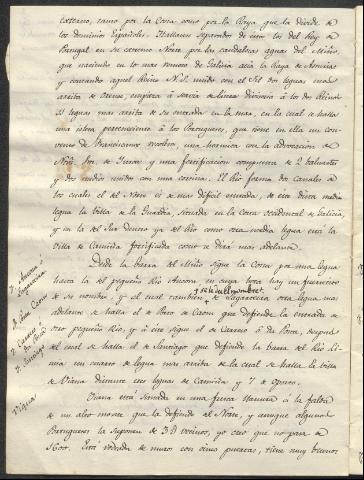 externo, tanto por la Costa como por la Raya que la divide de
los dominios Españoles. Hallanse separados de estos los del Rey de
Portugal en su extremo Norte por las caudalosas aguas del Miño,
que naciendo en lo mas remoto de Galicia acia la Raya de Asturias
y cercando aquel Reino N.S. unido con el Sil dos leguas mas
arriba de Orense, empieza á servir de linea divisoria á los dos Reinos
11 leguas mas arriba de su entrada en la mar, en la cual se halla
una isleta perteneciente á los Portugueses, que tiene en ella un Con-
vento de Franciscanos
Nra. Sra. de y una fortificacion compuesta de 2 baluartes
y dos medios unidos con una cortina. El Rio forma dos canales á
los cuales el del Norte es de mas dificil entrada, de esta dista media
legua la billa de la Guardia, situada en la Costa occidental de Galicia,
y en la del Sur dentro ya del Rio como otra media legua está la
Villa de Camiña fortificada como se dirá mas adelante.
Desde la barra del Miño sigue la Costa por una legua
hasta la del pequeño Rio Ancora en cuya boca hay un fuertecito
de su nombre, y el cual tambien de Lagarteira otra legua mas
adelante se halla el de Paso de Caon que defiende la entrada de
otro pequeño Rio, y á este sigue el de Carreco ó da Poca, despues
del cual se halla el de Santiago que defiende la barra del Rio Li-
ma un cuarto de legua mas arriba de la cual se halla la billa
de Viana distante tres leguas de Camiña y 7 de Oporto.
Viana está situada en una fuerte llanura á la falda
de un alto monte que la defiende del Norte, y aunque algunos
Portugueses la suponen de 3 D vecinos, yo creo que no pasa de
1600. Está rodeada de muros con cinco puertas, tiene muy buenos
ft. Ancora ó
Lagarteira
ft. Paso Caon
ft. Carreco ó
da Poca
ft. Santiago